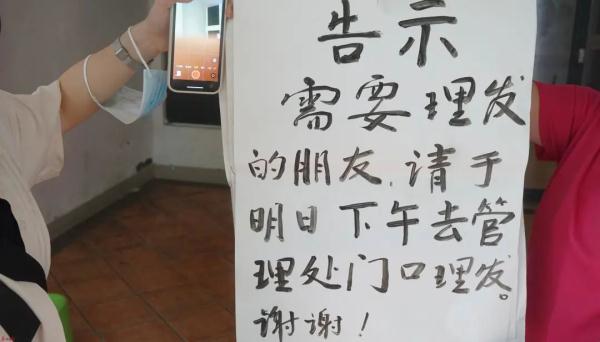 告示
需要理发
的朋友,请于
明日下午去管
理处门口理发。
谢谢!